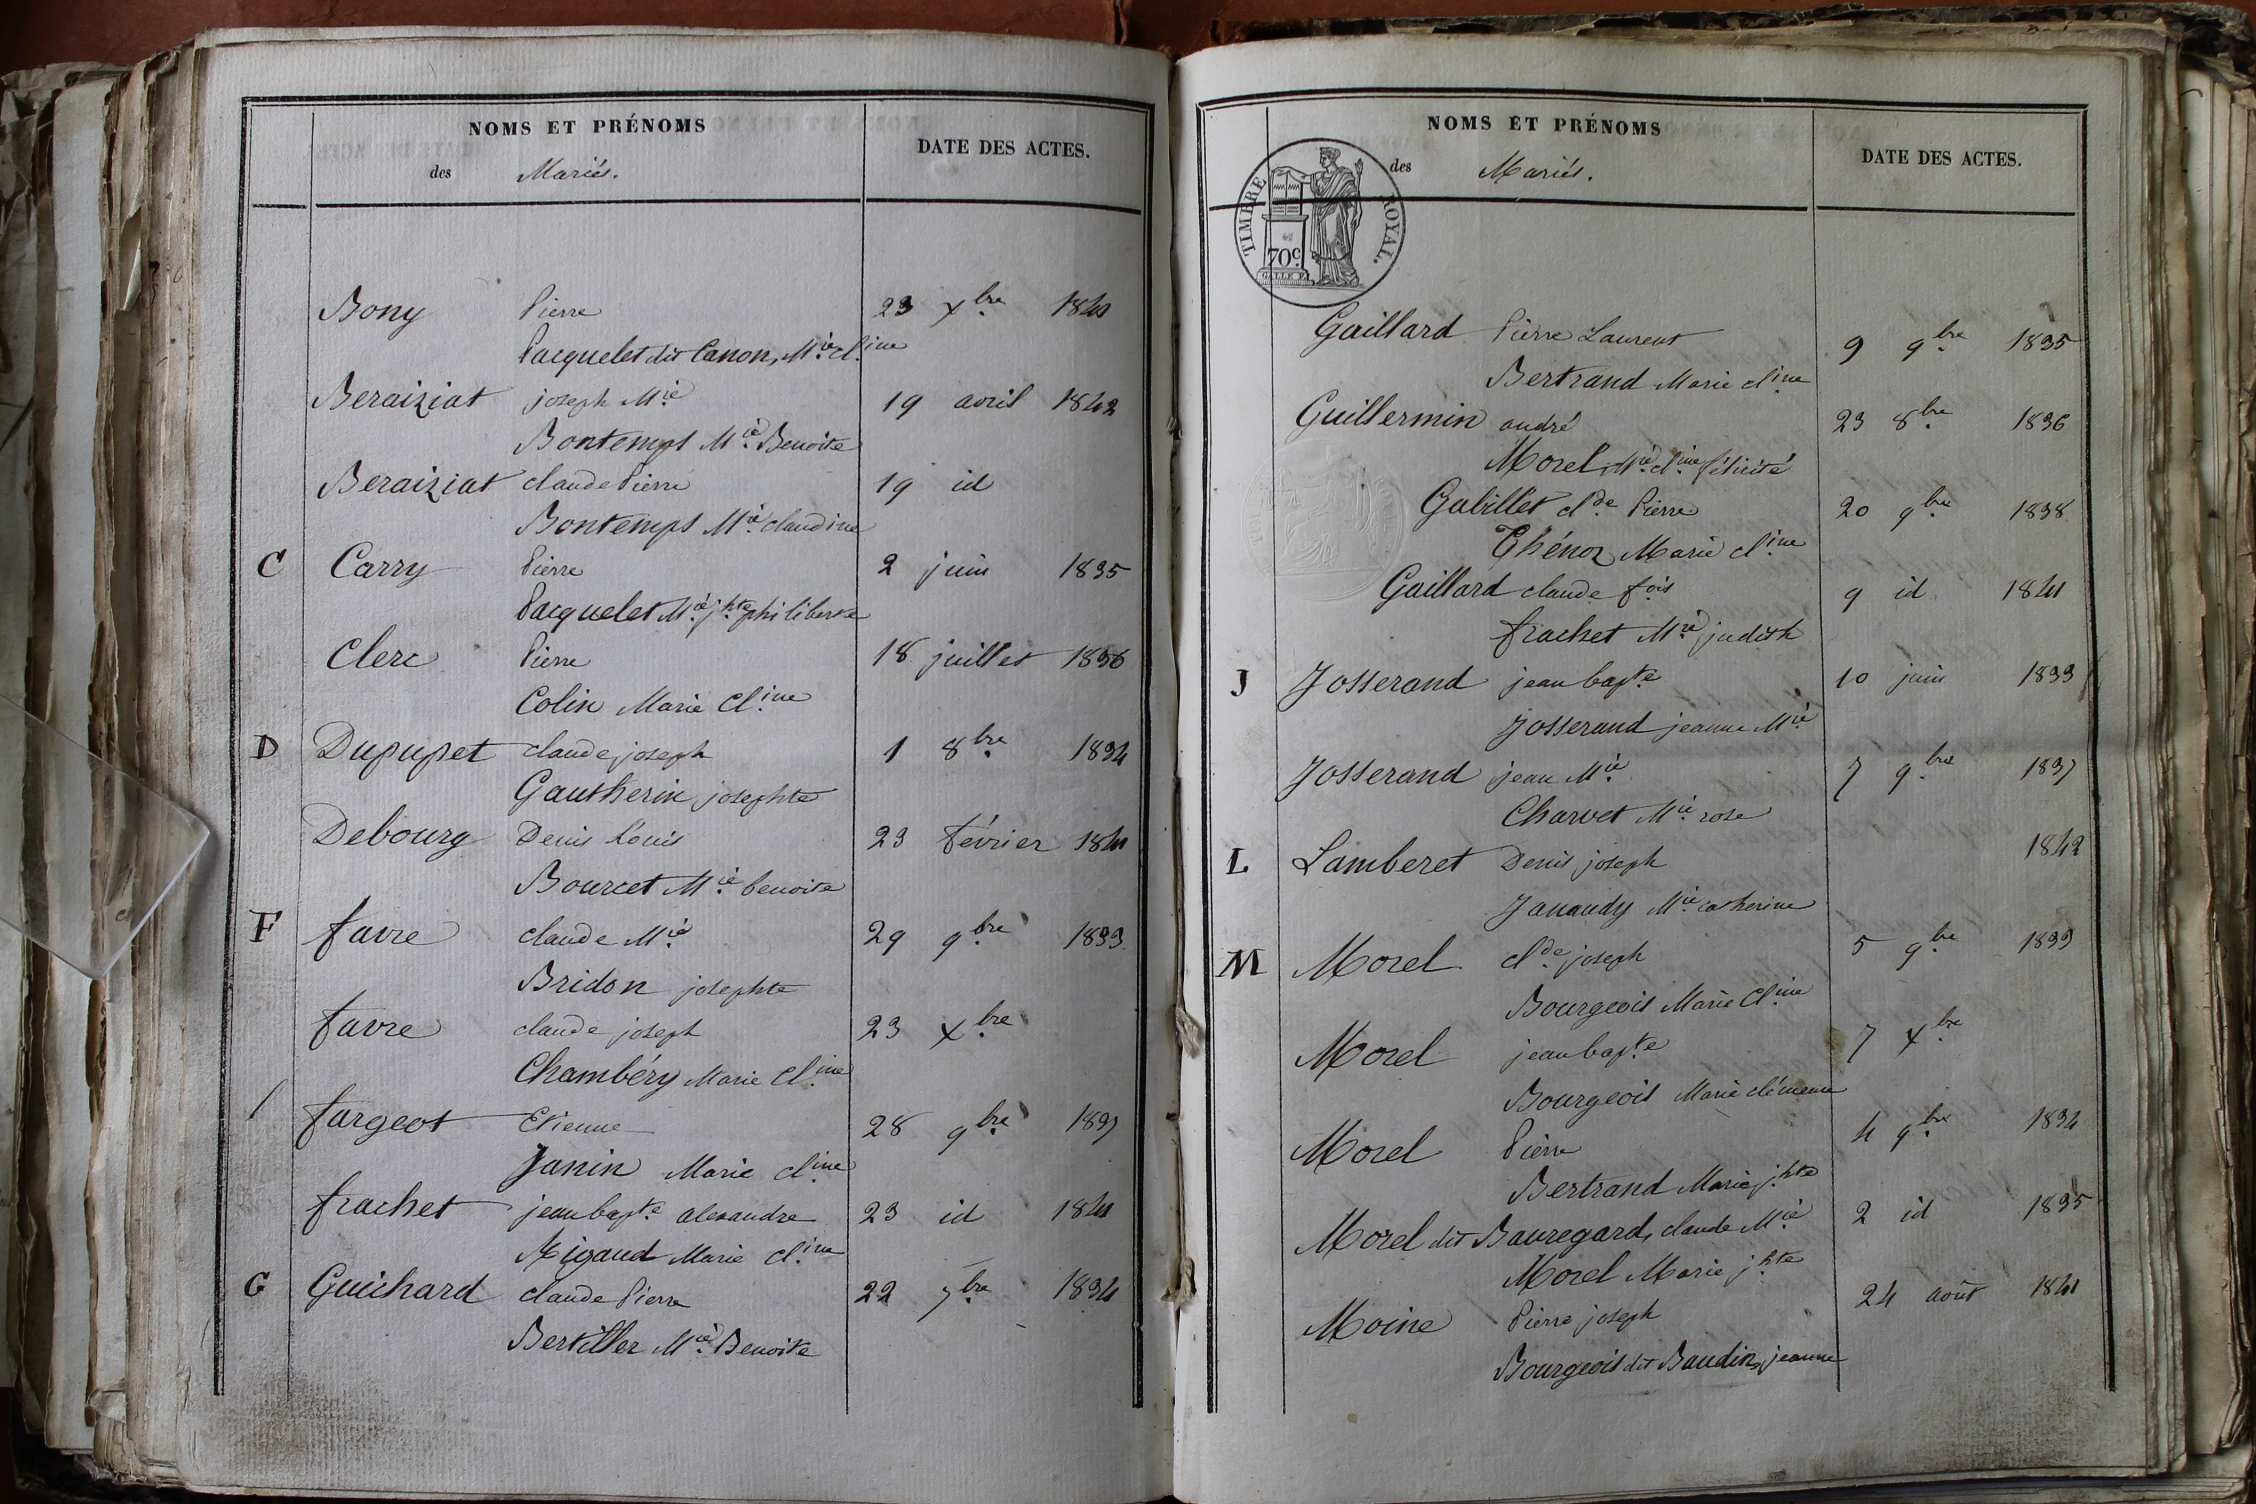 NOMS ET PRÉNOMS
des Mariés.
DATE DES ACTES.
Bony Pierre 23 Xbre 1840
Pacquelet dit Canon, Mie Cl.ine
Beraiziat joseph Mie 19 avril 1842
Bontemps Mie Benoite
Beraiziat claude Pierre 19 id
Bontemps Mie claudine
C Carry Pierre 2 juin 1835
Pacquelet Mie j.hte philiberte
Clerc Pierre 18 juillet 1836
Colin Marie Cl.ine
D Dupupet claude joseph 1 8bre 1834
Gautherin josephte
Debourg Denis Louis 23 février 1841
Bourcet Mie benoite
F favre claude Mie 29 9bre 1833
Bridon josephte
favre claude joseph 23 Xbre
Chambéry Marie Cl.ine
fargeot Etienne 28 9bre 1837
Janin Marie cl.ine
frachet jean bap.te alexandre 23 id 1841
Rigaud Marie cl.ine
G Guichard claude Pierre 22 7bre 1834
Bertiller Mie Benoite
NOMS ET PRÉNOMS
des Mariés.
DATE DES ACTES.
TIMBRE ROYAL.
70c.
Gaillard Pierre Laurent 9 9bre 1835
Bertrand Marie cl.ine
Guillermin andré 23 8bre 1836
Morel, Mie cl.ine félicité
Gabillet cl.de Pierre 20 9bre 1838
Thénoz Marie cl.ine
Gaillard claude fois 9 id 1841
frachet Mie judith
J Josserand jean bap.te 10 juin 1833
Josserand jeanne Mie
Josserand jean Mie 7 9bre 1837
Charvet Mie rose
L Lamberet Denis joseph 1842
Janaudy Mie catherine
M Morel cl.de joseph 5 9bre 1833
Bourgeois Marie Cl.ine
Morel jean bap.te 7 Xbre
Bourgeois Marie clémence
Morel Pierre 4 9bre 1834
Bertrand Marie j.hte
Morel dit Bauregard, claude Mie 2 id 1835
Morel Marie j.hte
Moine Pierre joseph 24 août 1841
Bourgeois dit Baudin, jeanne